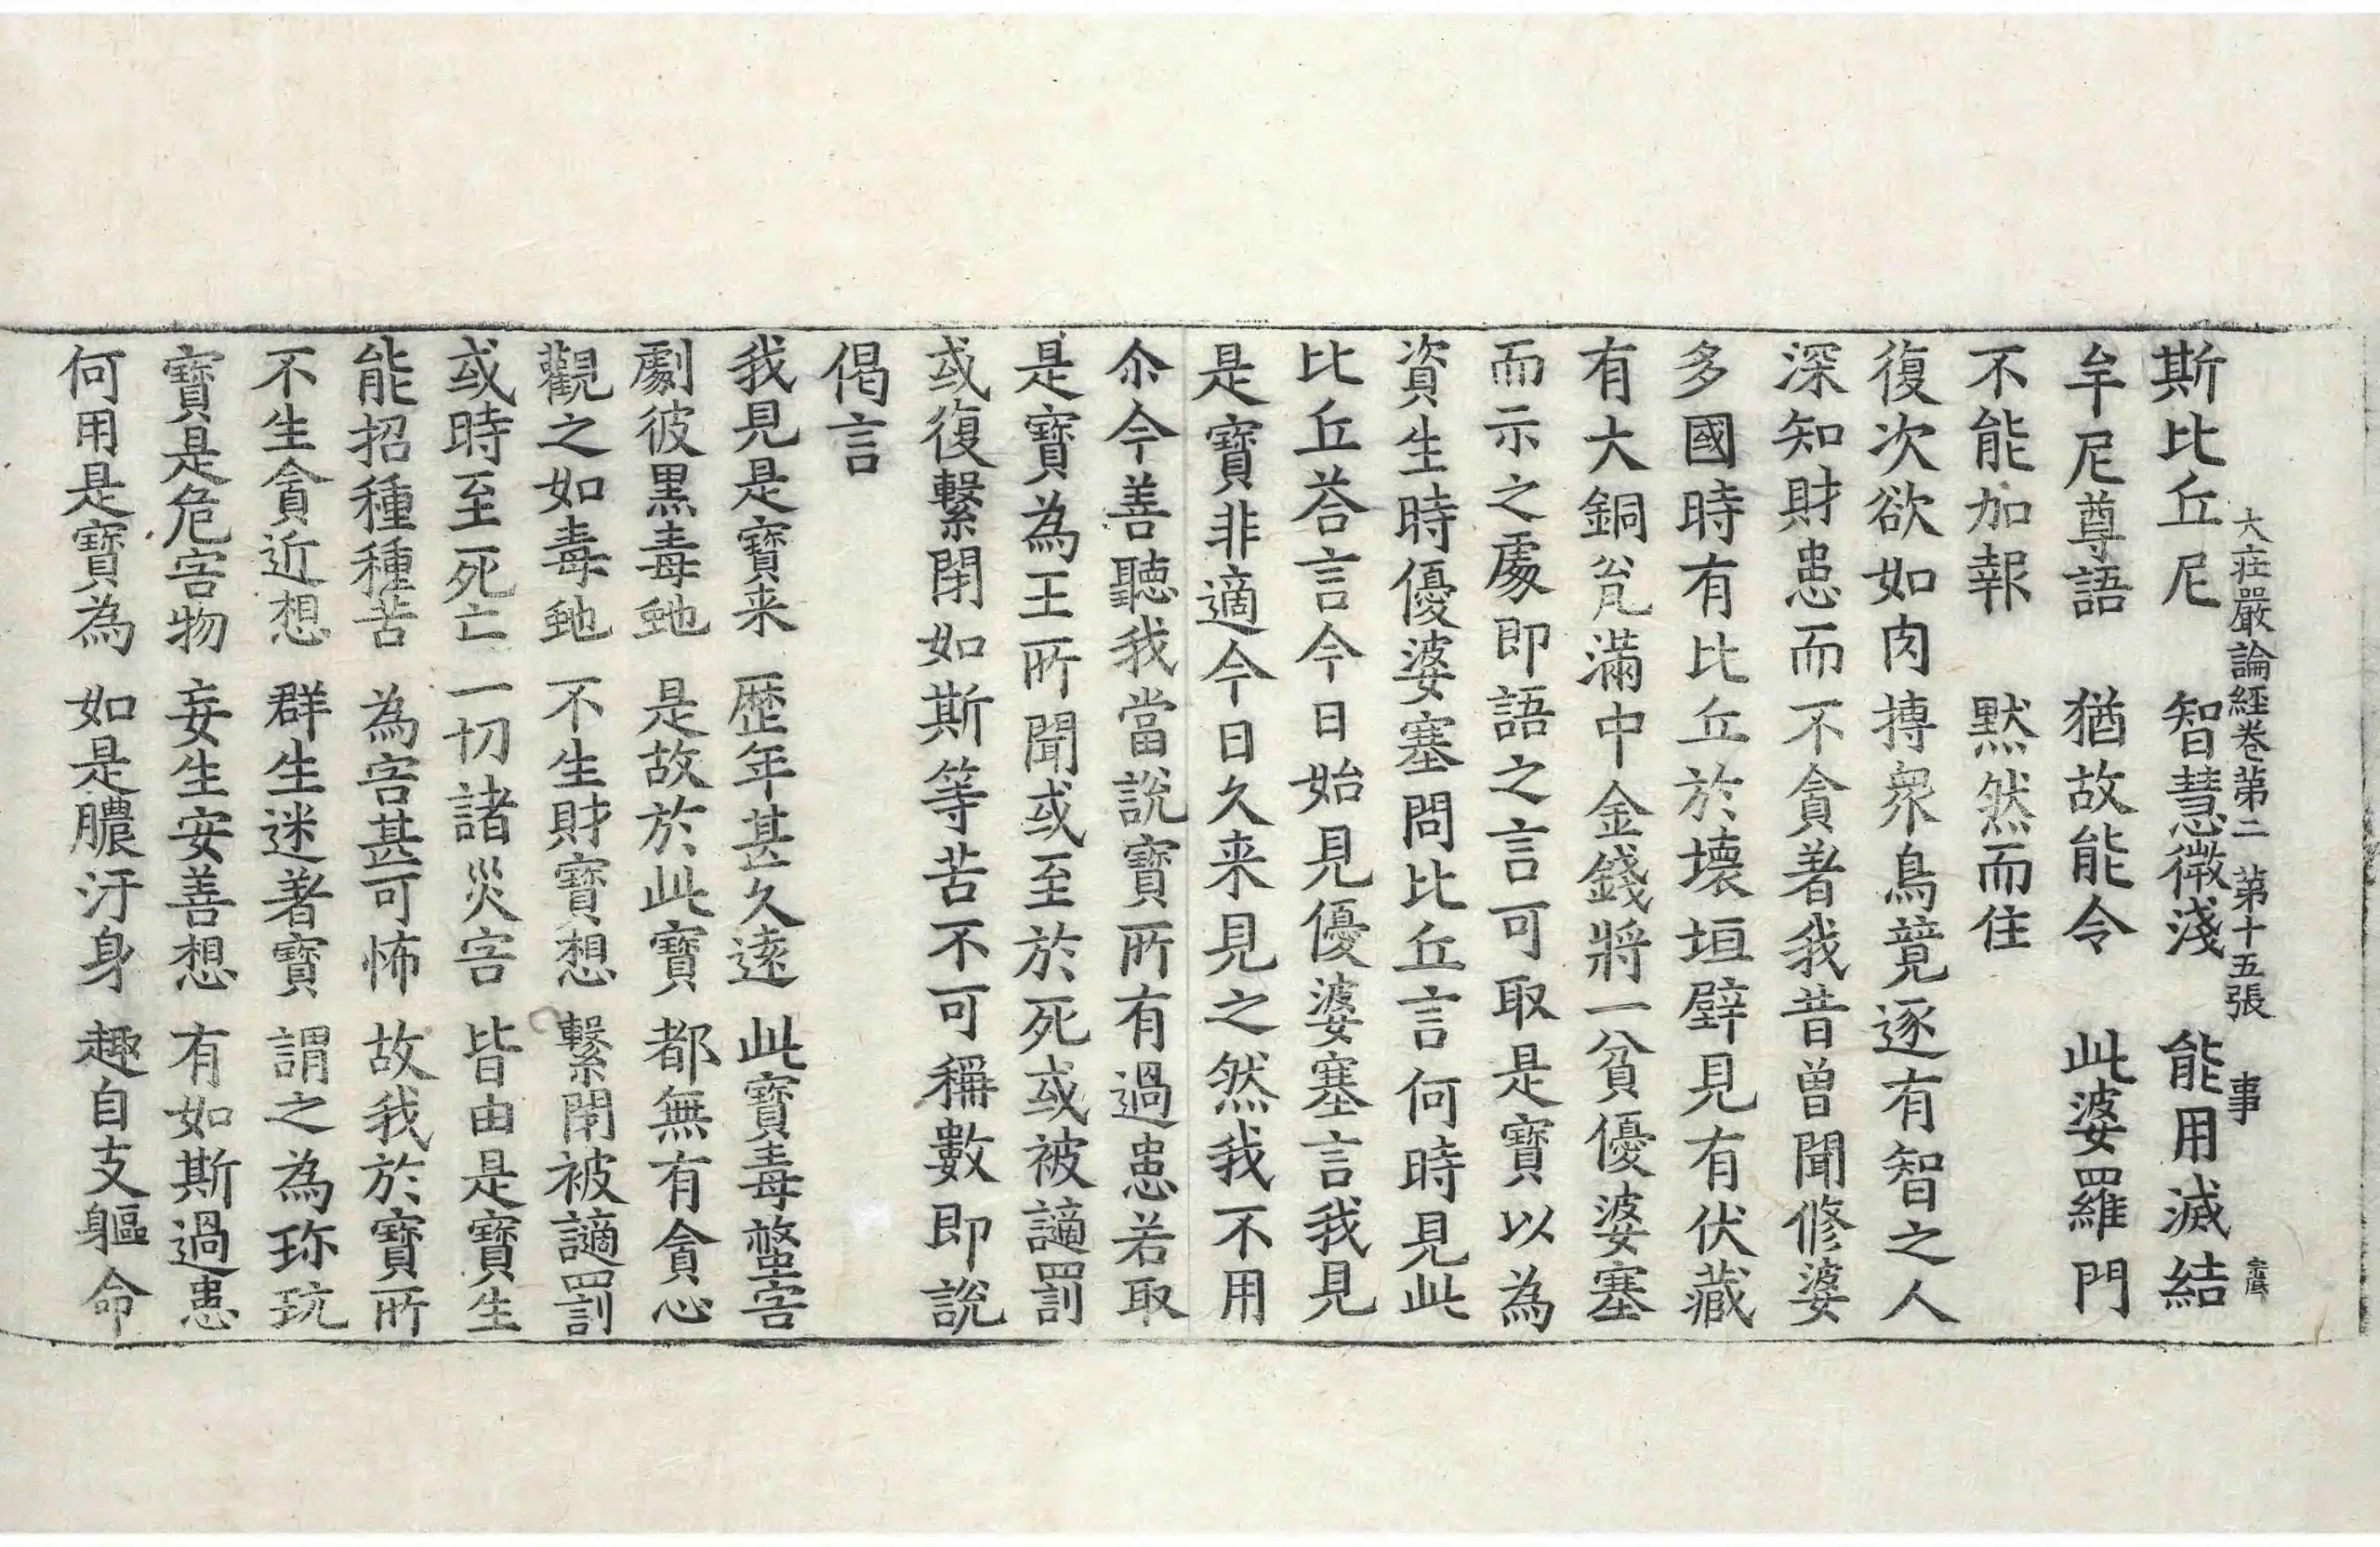 大莊嚴論經卷第二　第十五張　事
斯比丘尼　智慧微淺　能用滅結
牟尼尊語　猶故能令　此婆羅門
不能加報　默然而住
復次欲如肉摶衆鳥競逐有智之人
深知財患而不貪著我昔曾聞修婆
多國時有比丘於壞垣壁見有伏藏
有大銅瓮滿中金錢將一貧優婆塞
而示之處即語之言可取是寶以為
資生時優婆塞問比丘言何時見此
比丘荅言今日始見優婆塞言我見
是寶非適今日久来見之然我不用
尒今善聽我當說寶所有過患若取
是寶為王所聞或至於死或被讁罰
或復繫閉如斯等苦不可稱數即說
偈言
我見是寶来　歷年甚久遠　此寶毒螫害
劇彼黒毒虵　是故於此寶　都無有貪心
觀之如毒虵　不生財寶想　繫閉被讁罰
或時至死亡　一切諸災害　皆由是寶生
能招種種苦　為害甚可怖　故我於寶所
不生貪近想　群生迷著寶　謂之為珎玩
寶是危害物　妄生安善想　有如斯過患
何用是寶為　如是膿汙身　趣自支軀命